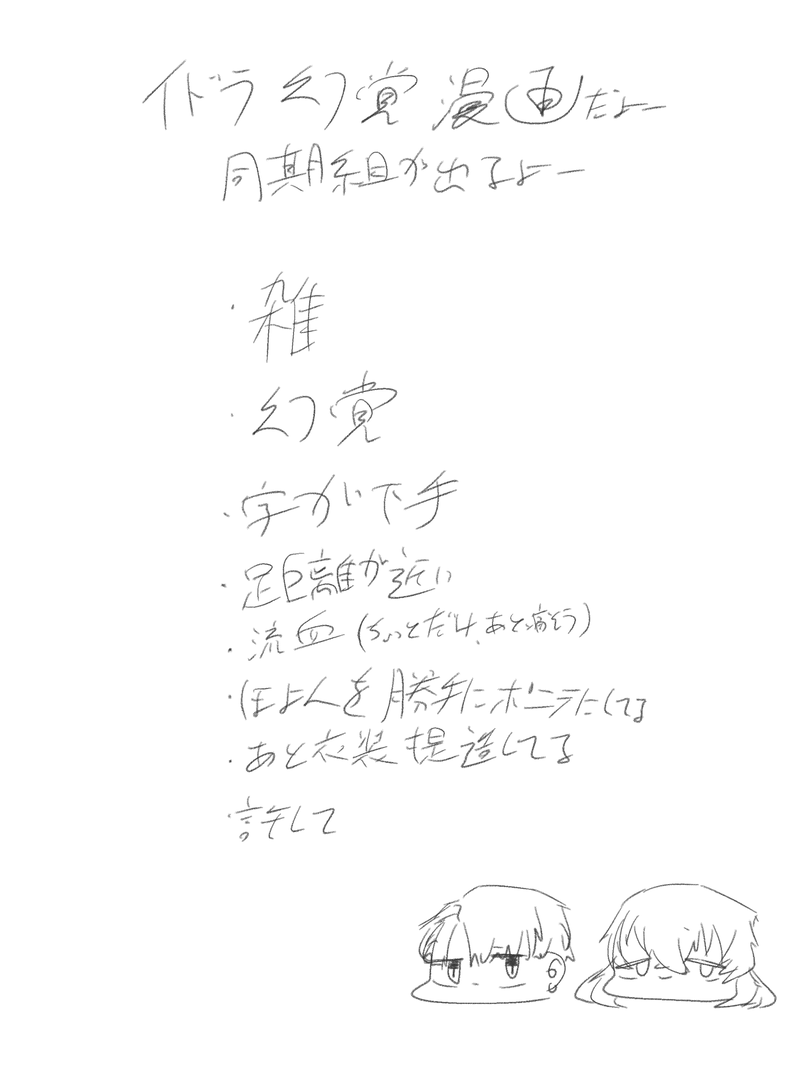 イドラ幻覚漫画だよー
同期組が出るよー
・雑
・幻覚
・字が下手
・足距離が近い
・流血(ちょっとだけ、あと歯行)
・ほよんを勝手にポニテにしてる
・あと衣装捏造してる
許して